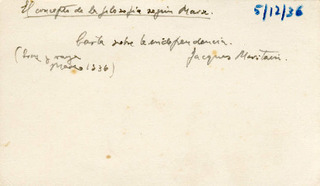 El concepto de la filosofía según Marx.
5/12/36
Carta sobre la independencia.
Jacques Maritain.
(Cruz y raya
Marzo 1936)